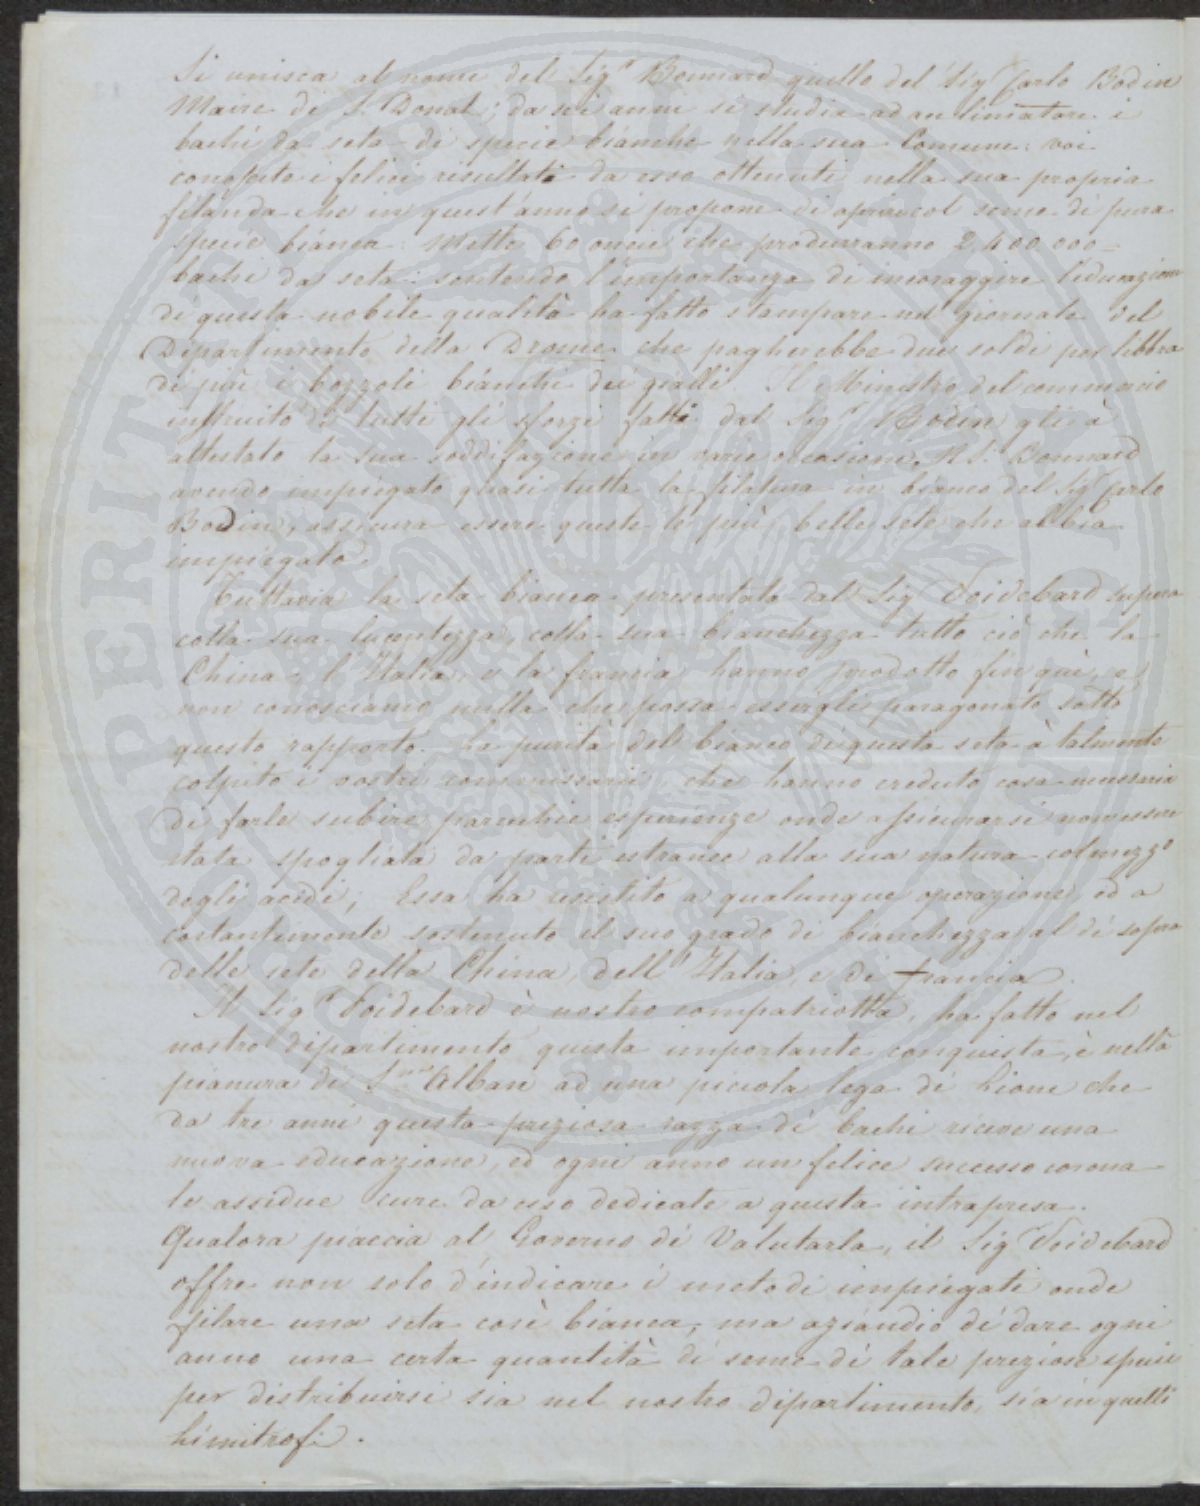 Si unisca al nome del Sig.r Bonnard quello del Sig Carlo Bodin
Maire di S. Donat; da sei anni si studia ad
bachi da seta di specie bianche nella sua Comune: voi
conoscete i felici risultati da esso ottenuti nella sua propria
filanda che in quest'anno si propone di seme di pura
specie bianca: Mette 60 oncie che produrranno 2,400,000=
bachi da seta: sentendo l'importanza di incoraggire l'educazione
di questa nobile qualità ha fatto stampare nel giornale del
Dipartimento della Drome che pagherebbe due soldi per libbra
di più i bozzoli bianchi dei gialli. Il Ministro del commercio
instruito di tutti gli sforzi fatti dal Sig.r Bodin gli à
attestato la sua soddisfazione in varie occasioni. Il S. Bonnard
avendo impiegato quasi tutta la filatura in bianco del Sig Carlo
Bodin, assicura essere queste le più belle sete che abbia
impiegato.
Tuttavia la seta bianca presentata dal Sig Poidebard supera
colla sua lucentezza, colla sua bianchezza tutto ciò che la
China, l'Italia, e la francia hanno prodotto fin quì, e
non conosciamo nulla che possa essergli paragonato sotto
questo rapporto. La purità del bianco di questa seta à talmente
colpito i vostri commissarii, che hanno creduto cosa necessaria
di farle subire parecchie esperienze onde assicurarsi non essere
stata spogliata da parti estranee alla sua natura col mezzo
degli acidi; Essa ha resistito a qualunque operazione, ed a
costantemente sostenuto il suo grado di bianchezza al di sopra
delle sete della China, dell'Italia, e di francia.
Il Sig.r Poidebard è nostro compatriotta, ha fatto nel
nostro dipartimento questa importante conquista, è nella
pianura di S. Alban ad una piccola lega di Lione che
da tre anni questa preziosa razza di bachi riceve una
nuova educazione, ed ogni anno un felice successo corona
le assidue cure da esso dedicate a questa intrapresa.
Qualora piaccia al Governo di Valutarla, il Sig Poidebard
offre non solo d'indicare i metodi impiegati onde
filare una seta così bianca, ma aziandio di dare ogni
anno una certa quantità di seme di tale preziosa specie
per distribuirsi sia nel nostro dipartimento, sia in quelli
limitrofi.